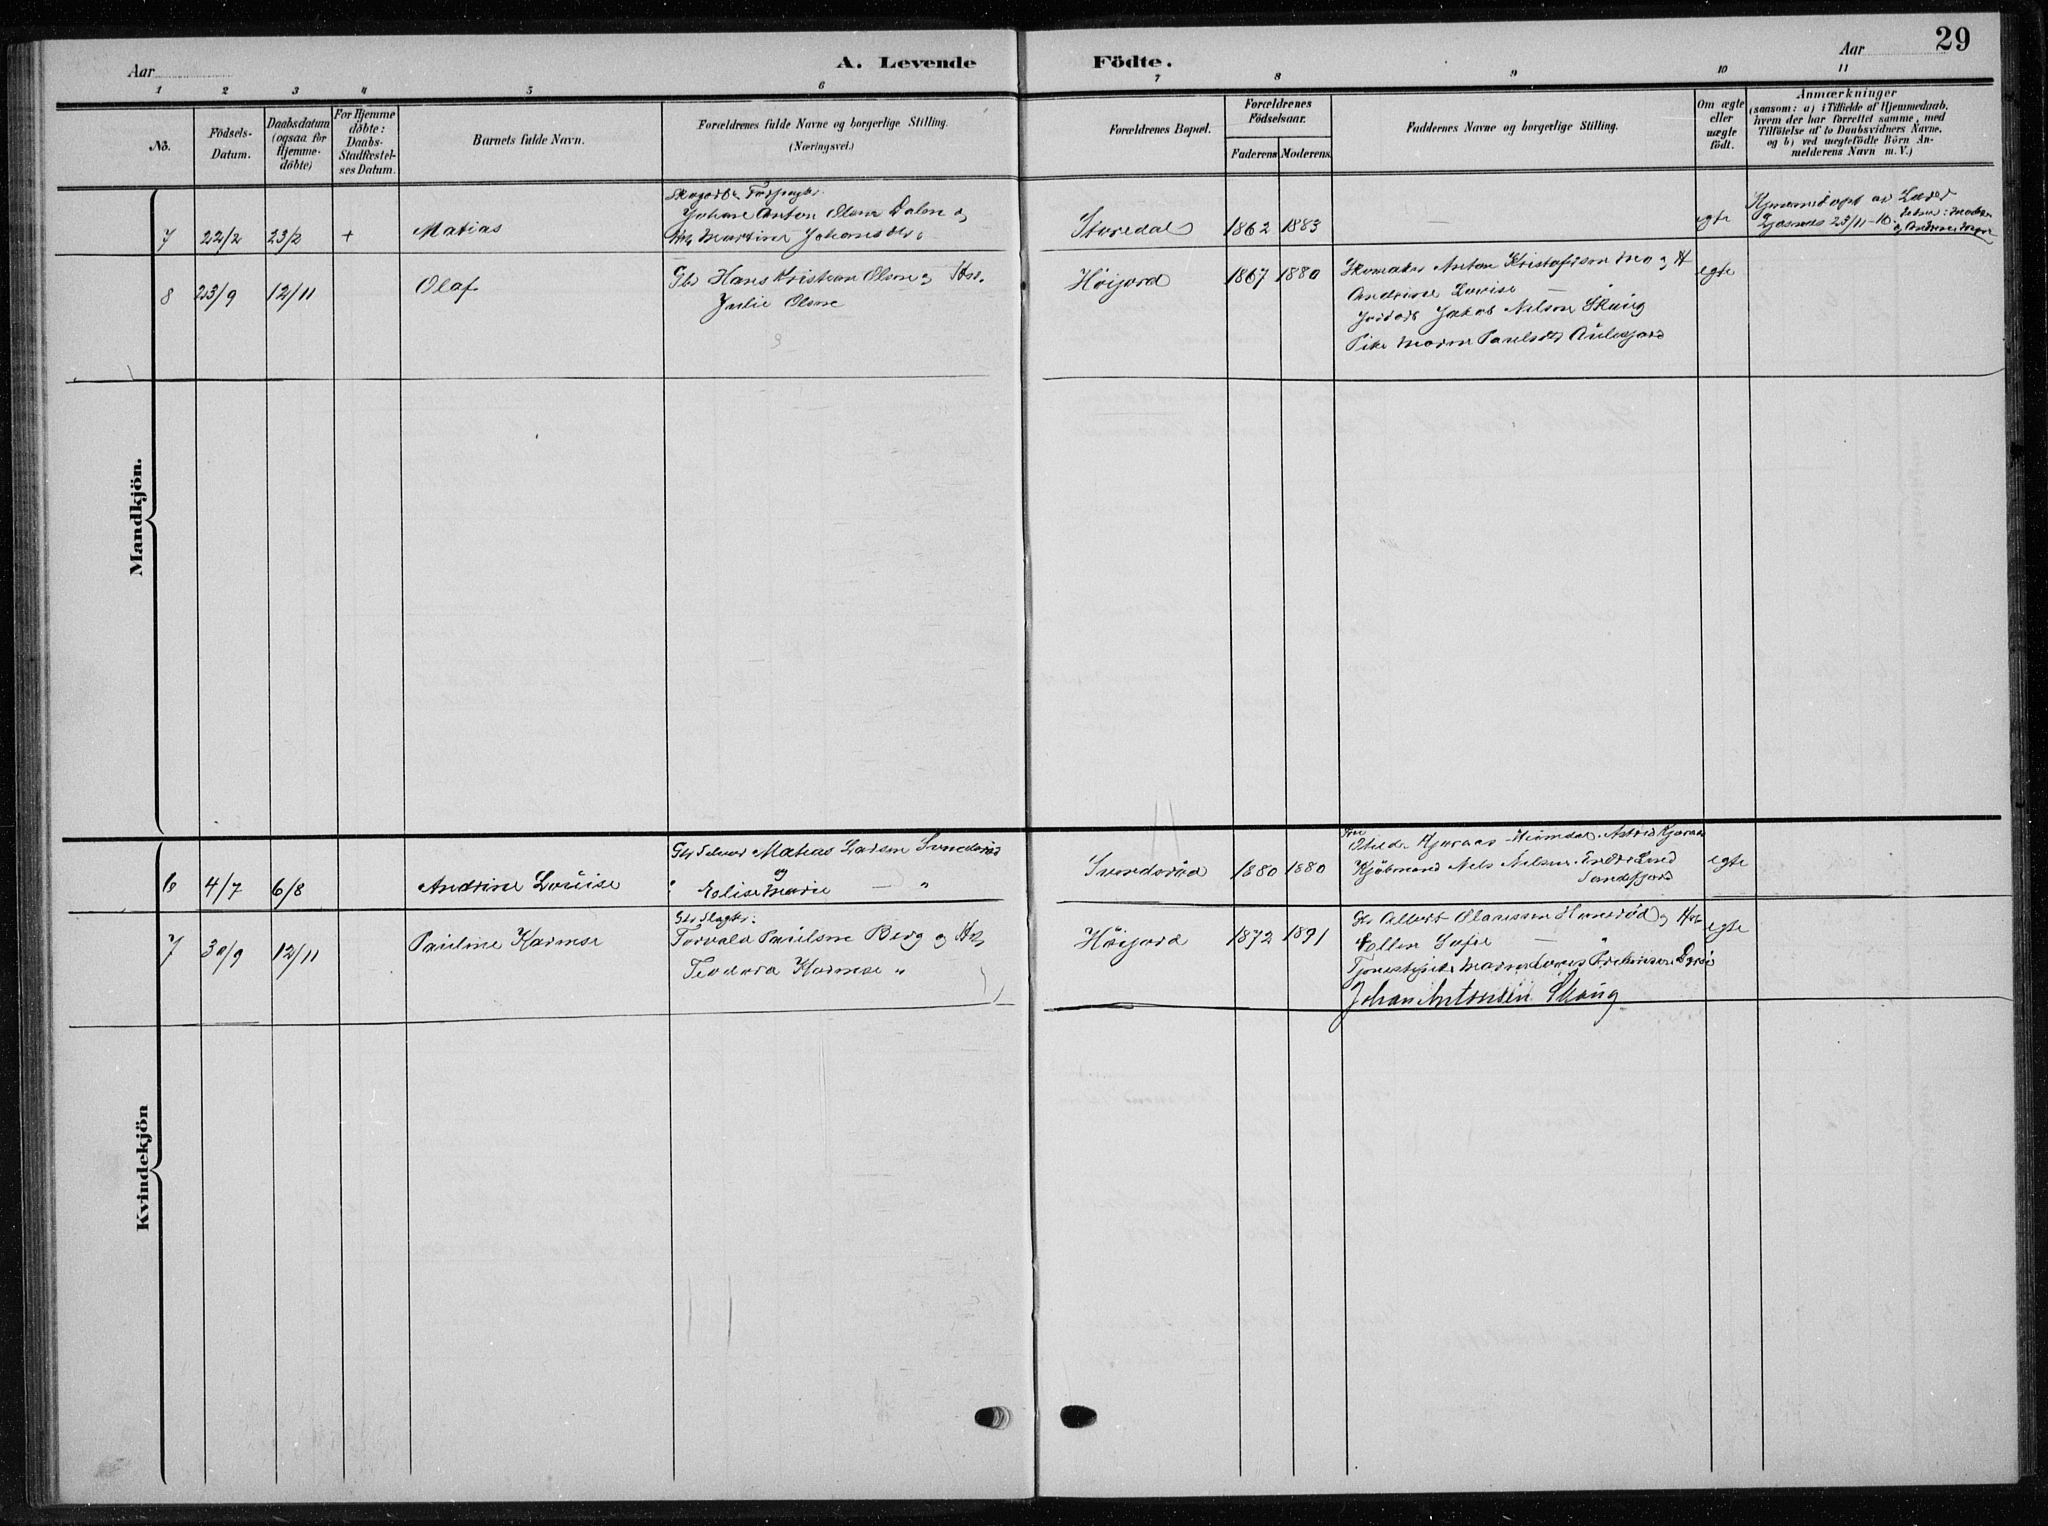 29
Aar
A. Levende
Födte.
Aar
1 2 3 4 5 6 7 8 9 10 11
No.
Födsels-
Datum.
Daabsdatum
(ogsaa for
Hjemme-
döbte)
For Hjemme
döbte:
Daabs-
Stadfæstel-
ses Datum.
Barnets fulde Navn.
Forældrenes fulde Navne og borgerlige Stilling.
(Næringsvei.)
Forældrenes Bopæl.
Forældrenes
Födselsaar.
Faderens Moderens.
Faddernes Navne og borgerlige Stilling.
Om ægte
eller
uægte
födt.
Anmærkninger
(saasom: a) i Tilfælde af Hjemmedaab.
hvem der har forrettet samme, med
Tilföielse af to Daabsvidners Navne.
og b) ved uægtefödte Börn An-
melderens Navn m. V.)
Mandkjön.
7 22/2 23/2 + Matias
Johan Anton Olsen Dalen og
Martine Johansdtr.
Støredal 1862 1883
egte
23/11-10
8 23/9 12/11 Olaf
Gbr Hans Kristian Olsen og Hst.
Julie Olsen
Høijord 1867 1880
Skomaker Anton Kristofersen Mo og H
Andrine Lovise —
Jakob Nilsen Skaug
Pike Maren Paulsdtr Aulesjord
egte
Kvindekjön
6 4/7 6/8 Andrine Louise
Matias Larsen Svendsrød
og
" Elise Marie — "
Svendsrød 1880 1880
Fru Kjæraas Heimdal. Astrid Kjæraas
Kjøbmand Nels Nilsen
Sandefjord
egte
7 30/9 12/11 Pauline Karense
Gbr Slagter
Torvald Paulsen Berg og Hst
Teodora Karense "
Høijord 1872 1891
Gbr Albert Olaussen Hanerød og Hst
Ellen Sofie —
Johan Antonsen Skaug
egte